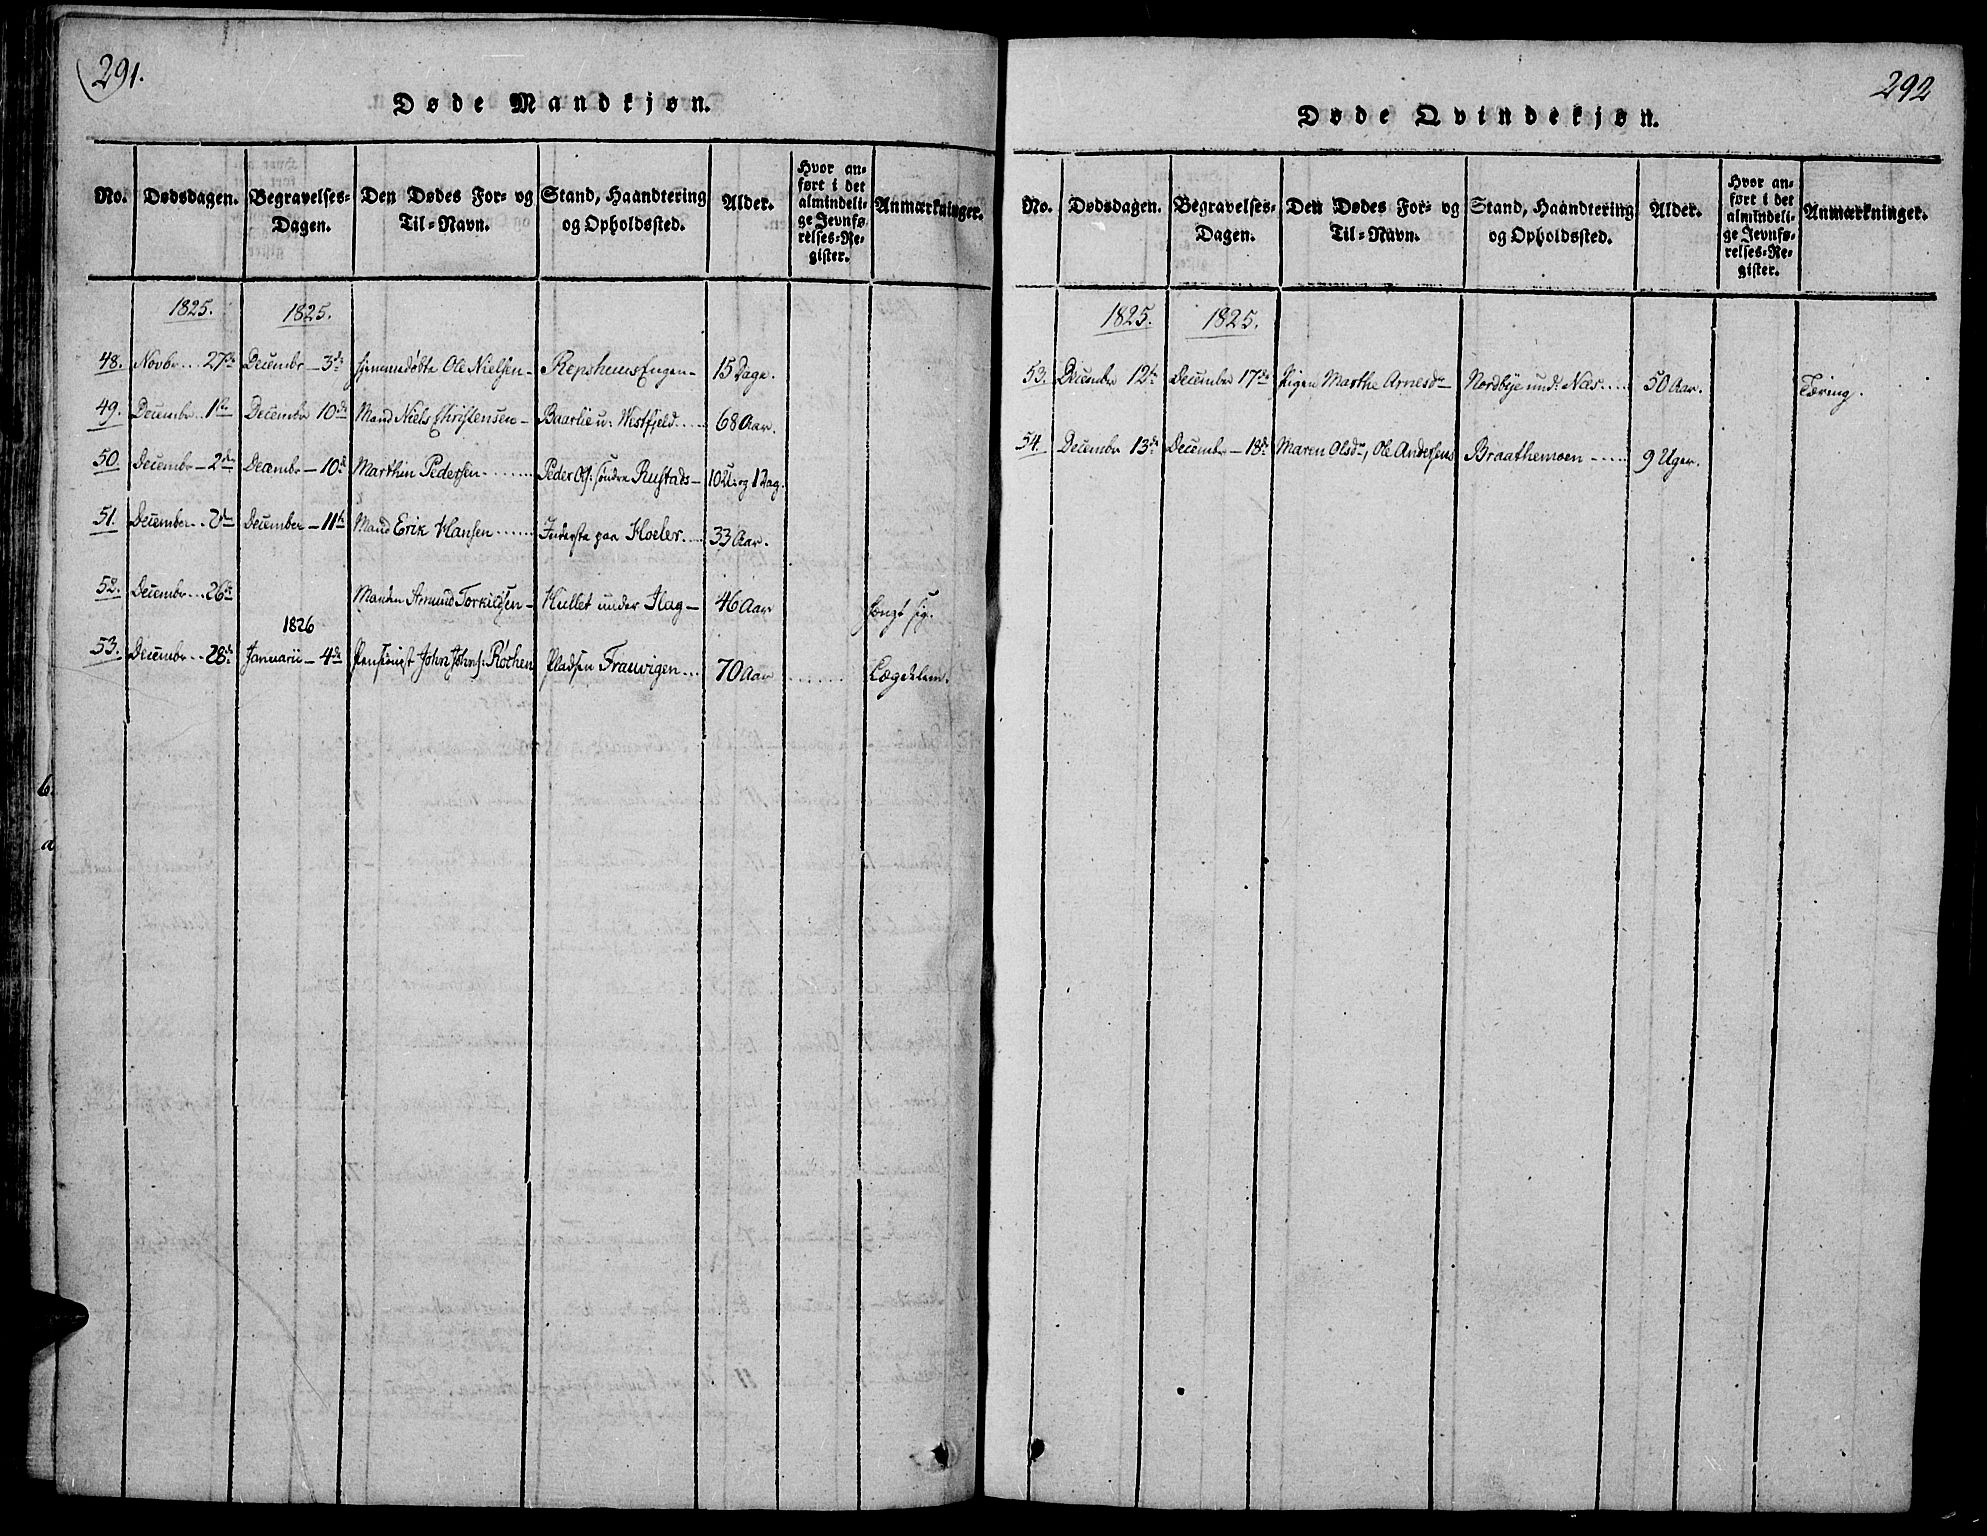 291.
Døde Mandkjøn.
No. Dødsdagen. Begravelses-Dagen. Den Dødes For- og Til-Navn. Stand, Haandtering og Opholdssted. Alder. Hvor anført i det almindelige Jevnførelses-Register. Anmærkninger.
1825. 1825.
48. Novbr... 27de Decembr - 3de hjemmedøbte Ole Nielsen - Repshems Engen - 15 Dage.
49. Decembr. 1ste Decembr 10de Mand Niels Christensen - Baarlie u: Westfjeld..... 68 Aar.
50. Decembr - 2den Decembr - 10de Marthin Pedersen....... Peder Ols: søndre Rustads - 10 U: og 1 Dag.
51. December.. 2den December - 11te Mand Erik Hansen...... Inderste paa Koeler.... 33 Aar.
52. Decembr... 26de Manden Amund Torkildsen - Hullet under Flag - 46 Aar
1826
53. Decembr.. 28de Januarii - 4de Pensionist John Johns: Rothen Pladsen Trauvigen... 70 Aar ...... Lægdslem.
292
Døde Qvindekjøn.
No. Dødsdagen. Begravelses-Dagen. Den Dødes For- og Til-Navn. Stand, Haandtering og Opholdssted. Alder. Hvor anført i det almindelige Jevnførelses-Register. Anmærkninger.
1825. 1825.
53. December 12te December 17de Pigen Marthe Arnesdr Nordbye und: Næs.... 50 Aar. Tæring.
54. Decembr 13de Decembr - 18de Maren Olsdr, Ole Andersens Braathemoen..... 9 Uger.